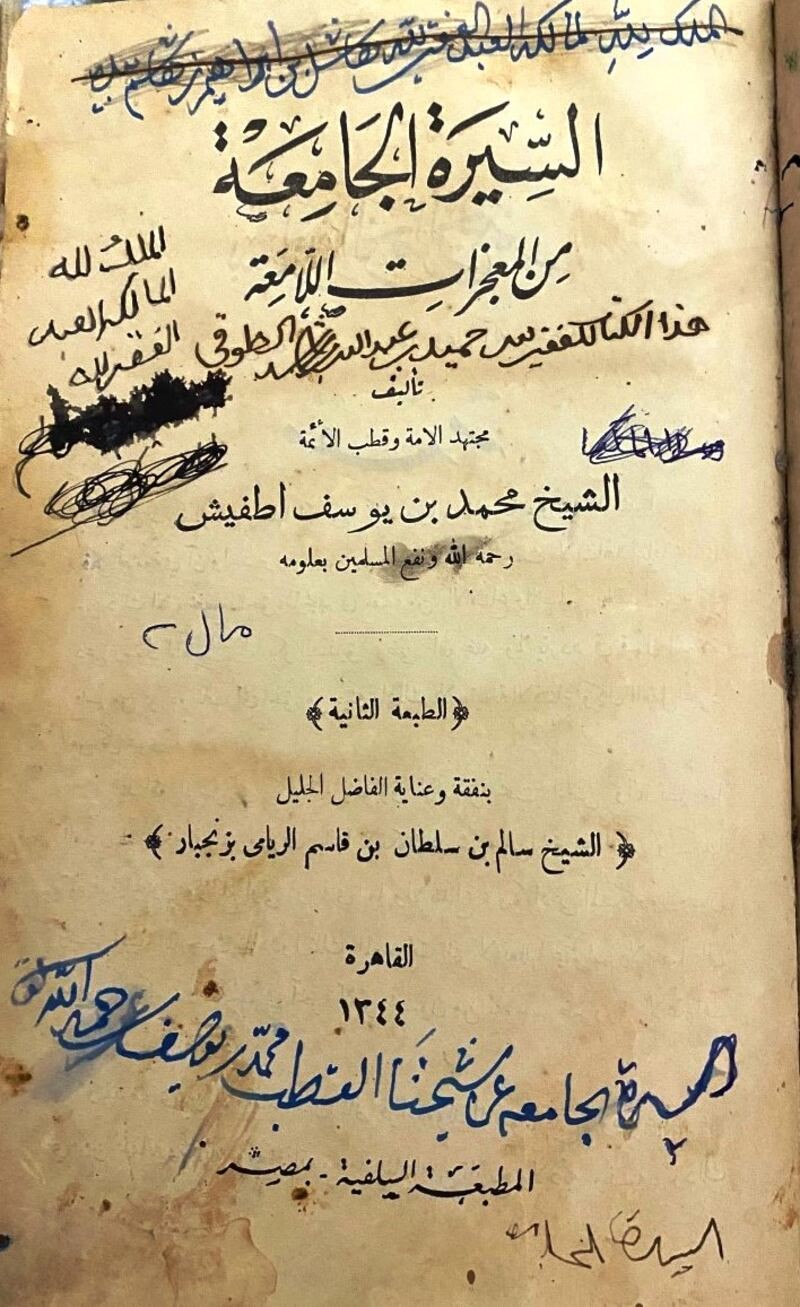 الملك لله لمالكه العبد الفقير لله بن ابراهيم بن
السِّيرَة الجَامِعَة
مِنَ المعجزاتِ اللّامِعَة
الملك لله
المالكه العبد
الفقير لله
هذا الكتاب للفقير حميد بن عبدالله الطوقي
تأليف
مجتهد الامة وقطب الأئمة
الشيخ محمد بن يوسف اطفيش
رحمه الله ونفع المسلمين بعلومه
مال
﴿الطبعة الثانية﴾
بنفقة وعناية الفاضل الجليل
﴿ الشيخ سالم بن سلطان بن قاسم الريامى بزنجبار ﴾
القاهرة
١٣٤٤
السيرة الجامعه شيخنا القطب محمّد بن يوسف رحمه الله
المطبعَة السلفية - بمصر
السيرة